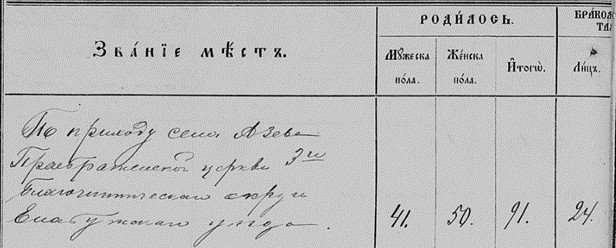 РОДИ́ЛОСЬ.
БРАКОСО
ТА
ЗВА́НІЕ МѢ́СТЪ.
МꙊЖЕСКА ПО́ЛА.
ЖЕ́НСКА ПО́ЛА.
И҆ТОГѠ̀.
ЛИ́ЦЪ.
По приходу села Азева
Преображенской церкви 3го
благочинническаго округа
Елабужскаго уѣзда.
41.
50.
91.
24.